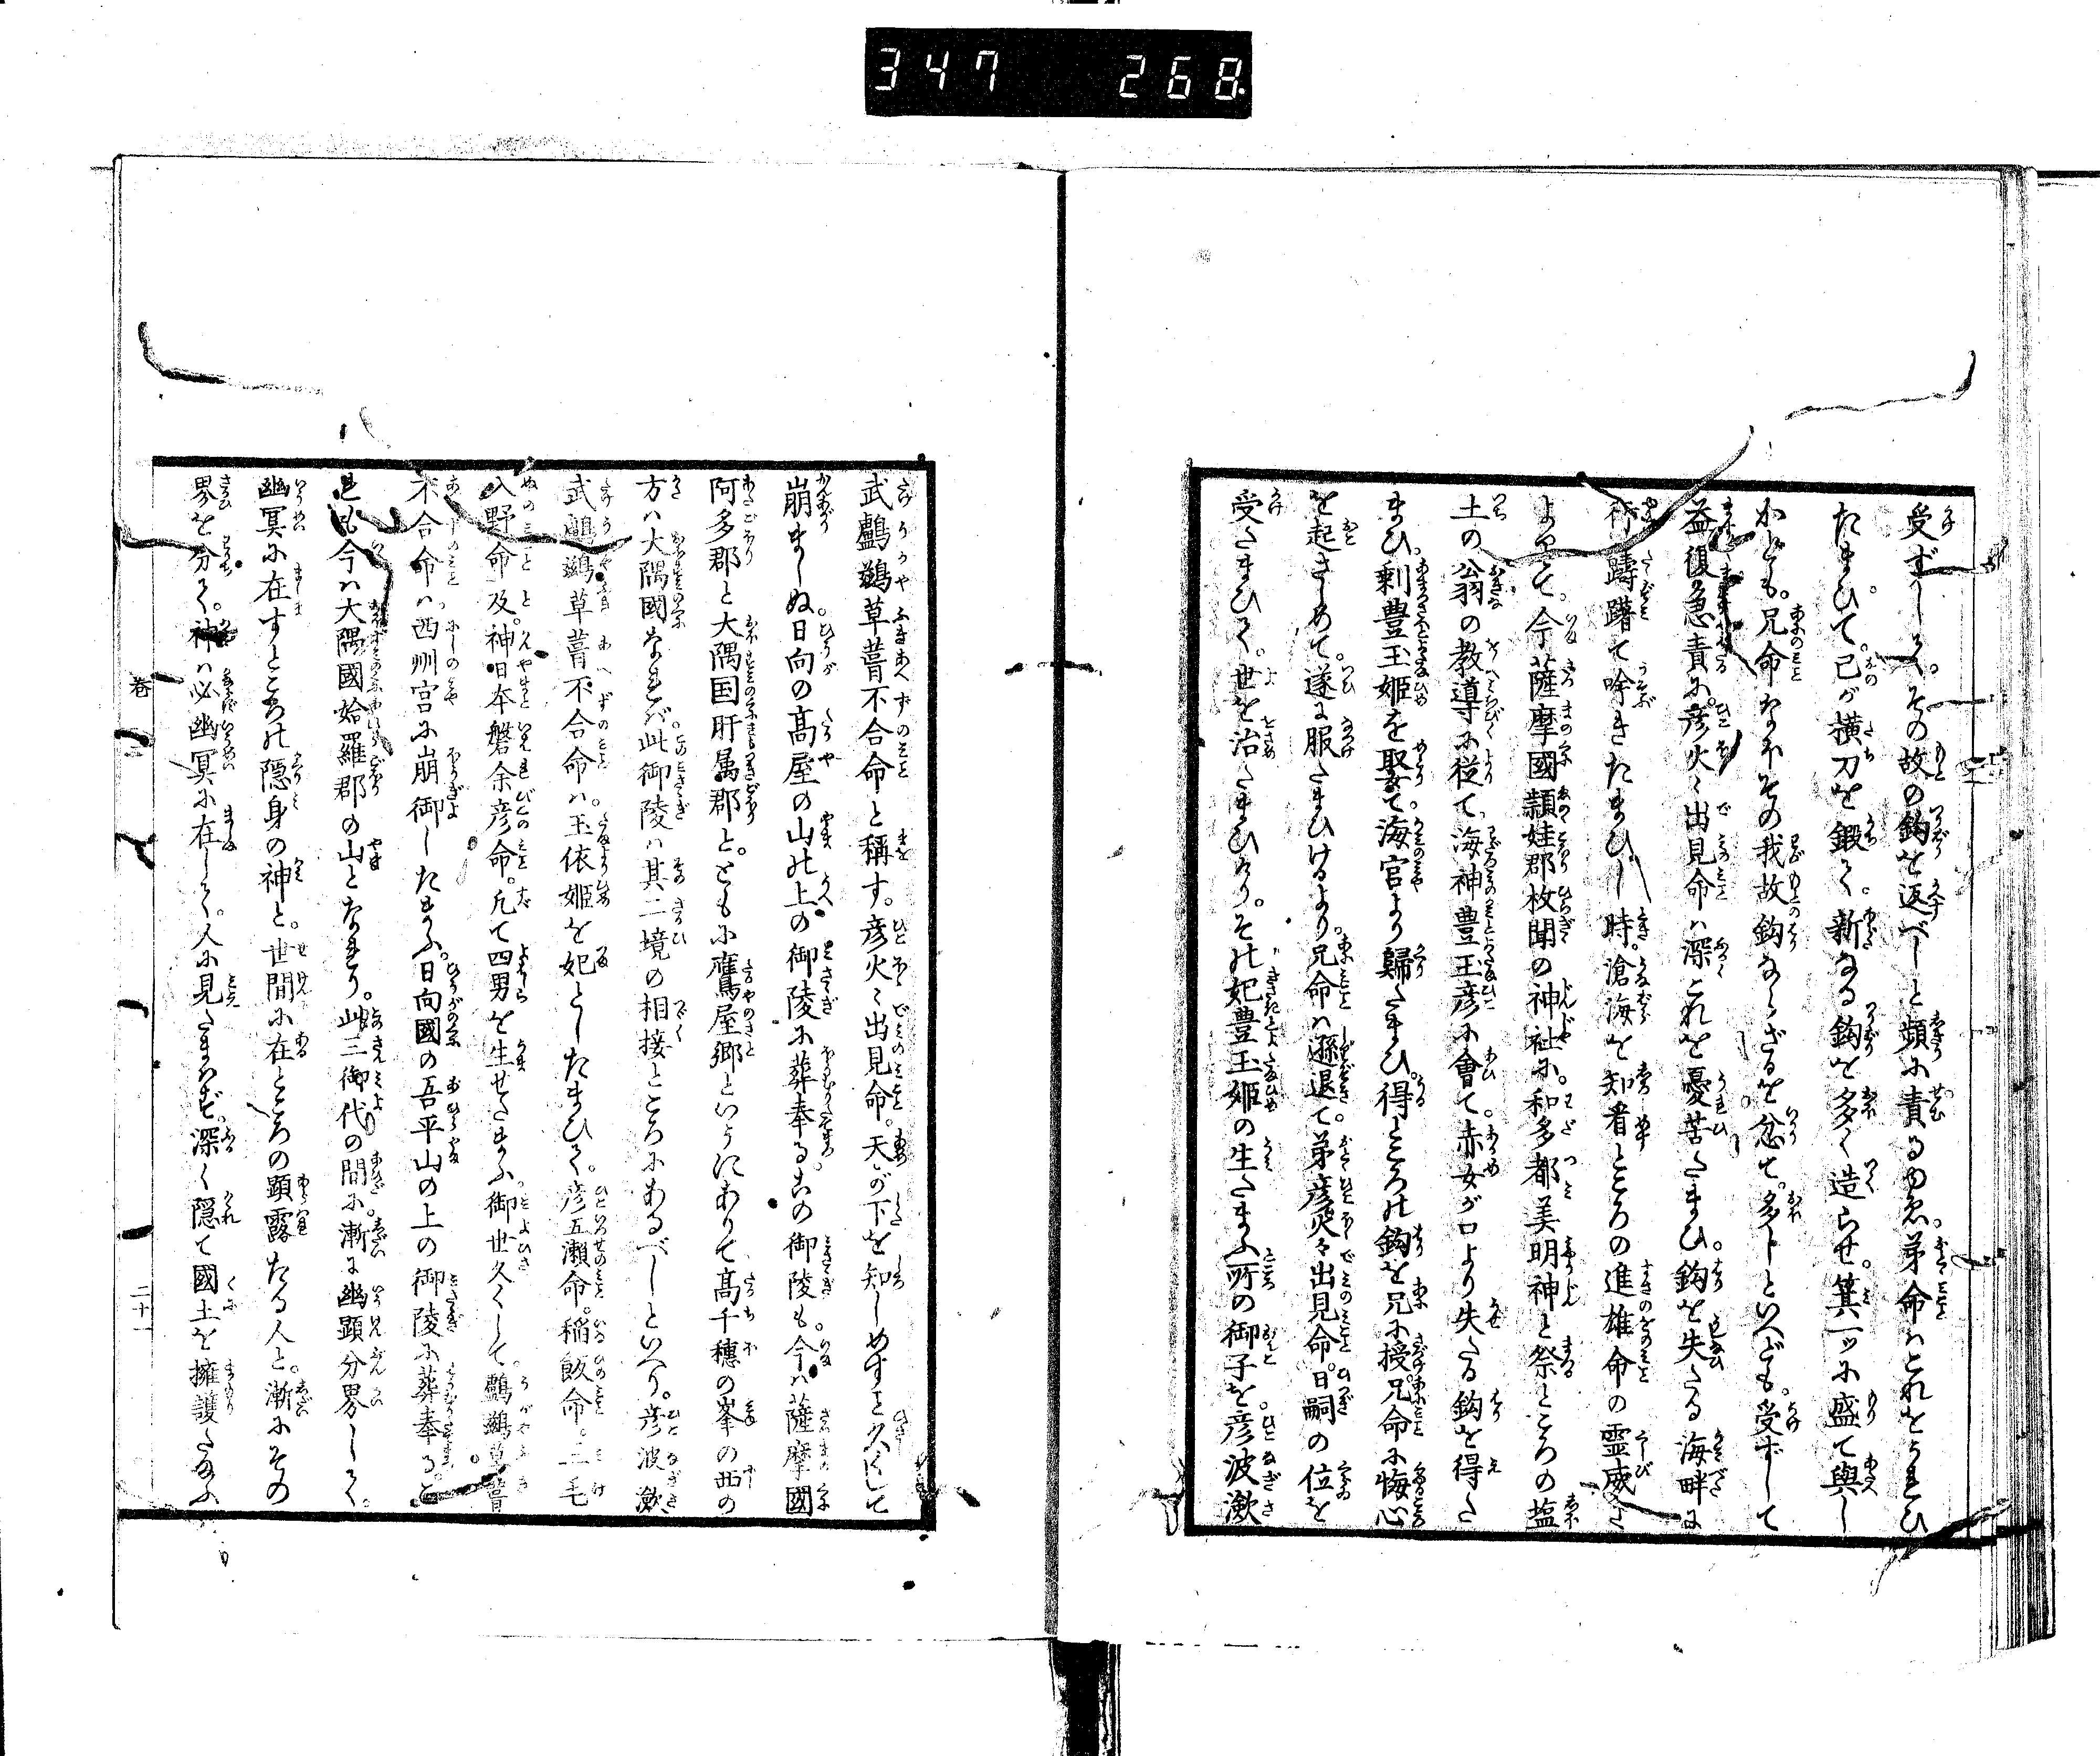 347 268
受ずして。その故の鈎を返べしと頻に責るゆゑ。弟命はこれをうれひ
たまひて。己が横刀を鍛て。新なる鈎を多く造らせ。箕一ツに盛て與し
かども。兄命なほその我故鈎ならざるを忿て。多しといへども。受ずして
益復急責に。彦火々出見命は深これを憂苦たまひ。鈎を失たる海畔に
行躊躇て吟きたまひし時。滄海を知看ところの進雄命の霊威に
よりて。今薩摩國頴娃郡枚聞の神社に。和多都美明神と祭ところの塩
土の翁の教導に従て。海神豊玉彦に會て。赤女が口より失たる鈎を得た
まひ。剰豊玉姫を娶て。海宮より歸たまひ。得ところの鈎を兄に授。兄命に悔心
を起さしめて。遂に服たまひけるより。兄命は遜退て。弟彦火々出見命。日嗣の位を
受たまひて。世を治たまひけり。その妃豊玉姫の生たまふ所の御子を。彦波瀲
武鸕鷀草葺不合命と稱す。彦火々出見命。天が下を知しめすこと久くして
崩ましぬ。日向の高屋の山の上の御陵に葬奉る。この御陵も。今は薩摩國
阿多郡と大隅国肝属郡と。ともに鷹屋郷といふにありて高千穗の峯の西の
方は大隅國なれば。此御陵は其二境の相接ところにあるべしといへり。彦波瀲
武鸕鷀草葺不合命は。玉依姫を妃としたまひて。彦五瀬命。稲飯命。三毛
入野命及。神日本磐余彦命。凡て四男を生せたまふ。御世久くして。鸕鷀草葺
不合命は。西州宮に崩御したまふ。日向國の吾平山の上の御陵に葬奉ると
いへども今は大隅國姶羅郡の山となれり。此三御代の間に。漸に幽顕分界して。
幽冥に在すところの隠身の神と。世間に在ところの顕露たる人と。漸にその
界を分て。神は必幽冥に在して。人に見たまはず。深く隠て國土を擁護たまふ
卷二 二十一